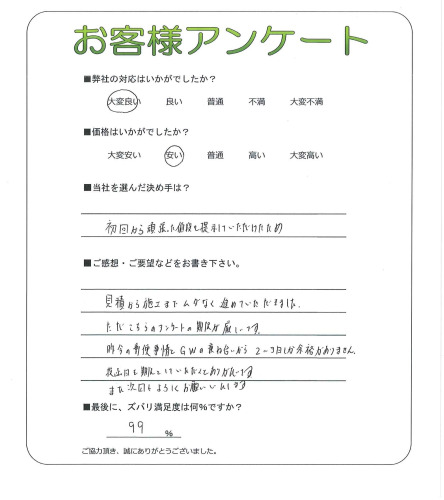 お客様アンケート
■弊社の対応はいかがでしたか？
大変良い 良い 普通 不満 大変不満
■価格はいかがでしたか？
大変安い 安い 普通 高い 大変高い
■当社を選んだ決め手は？
初回から頑張った値段を提示していただけたため
■ご感想・ご要望などをお書き下さい。
見積から施工までムダなく進めていただきました。
ただこちらのアンケートの期限が厳しいです
昨今の郵便事情とGWの兼ね合いから 2〜3日しか余裕がありません.
また次回もよろしくお願いします
■最後に、ズバリ満足度は何%ですか？
99 %
ご協力頂き、誠にありがとうございました。